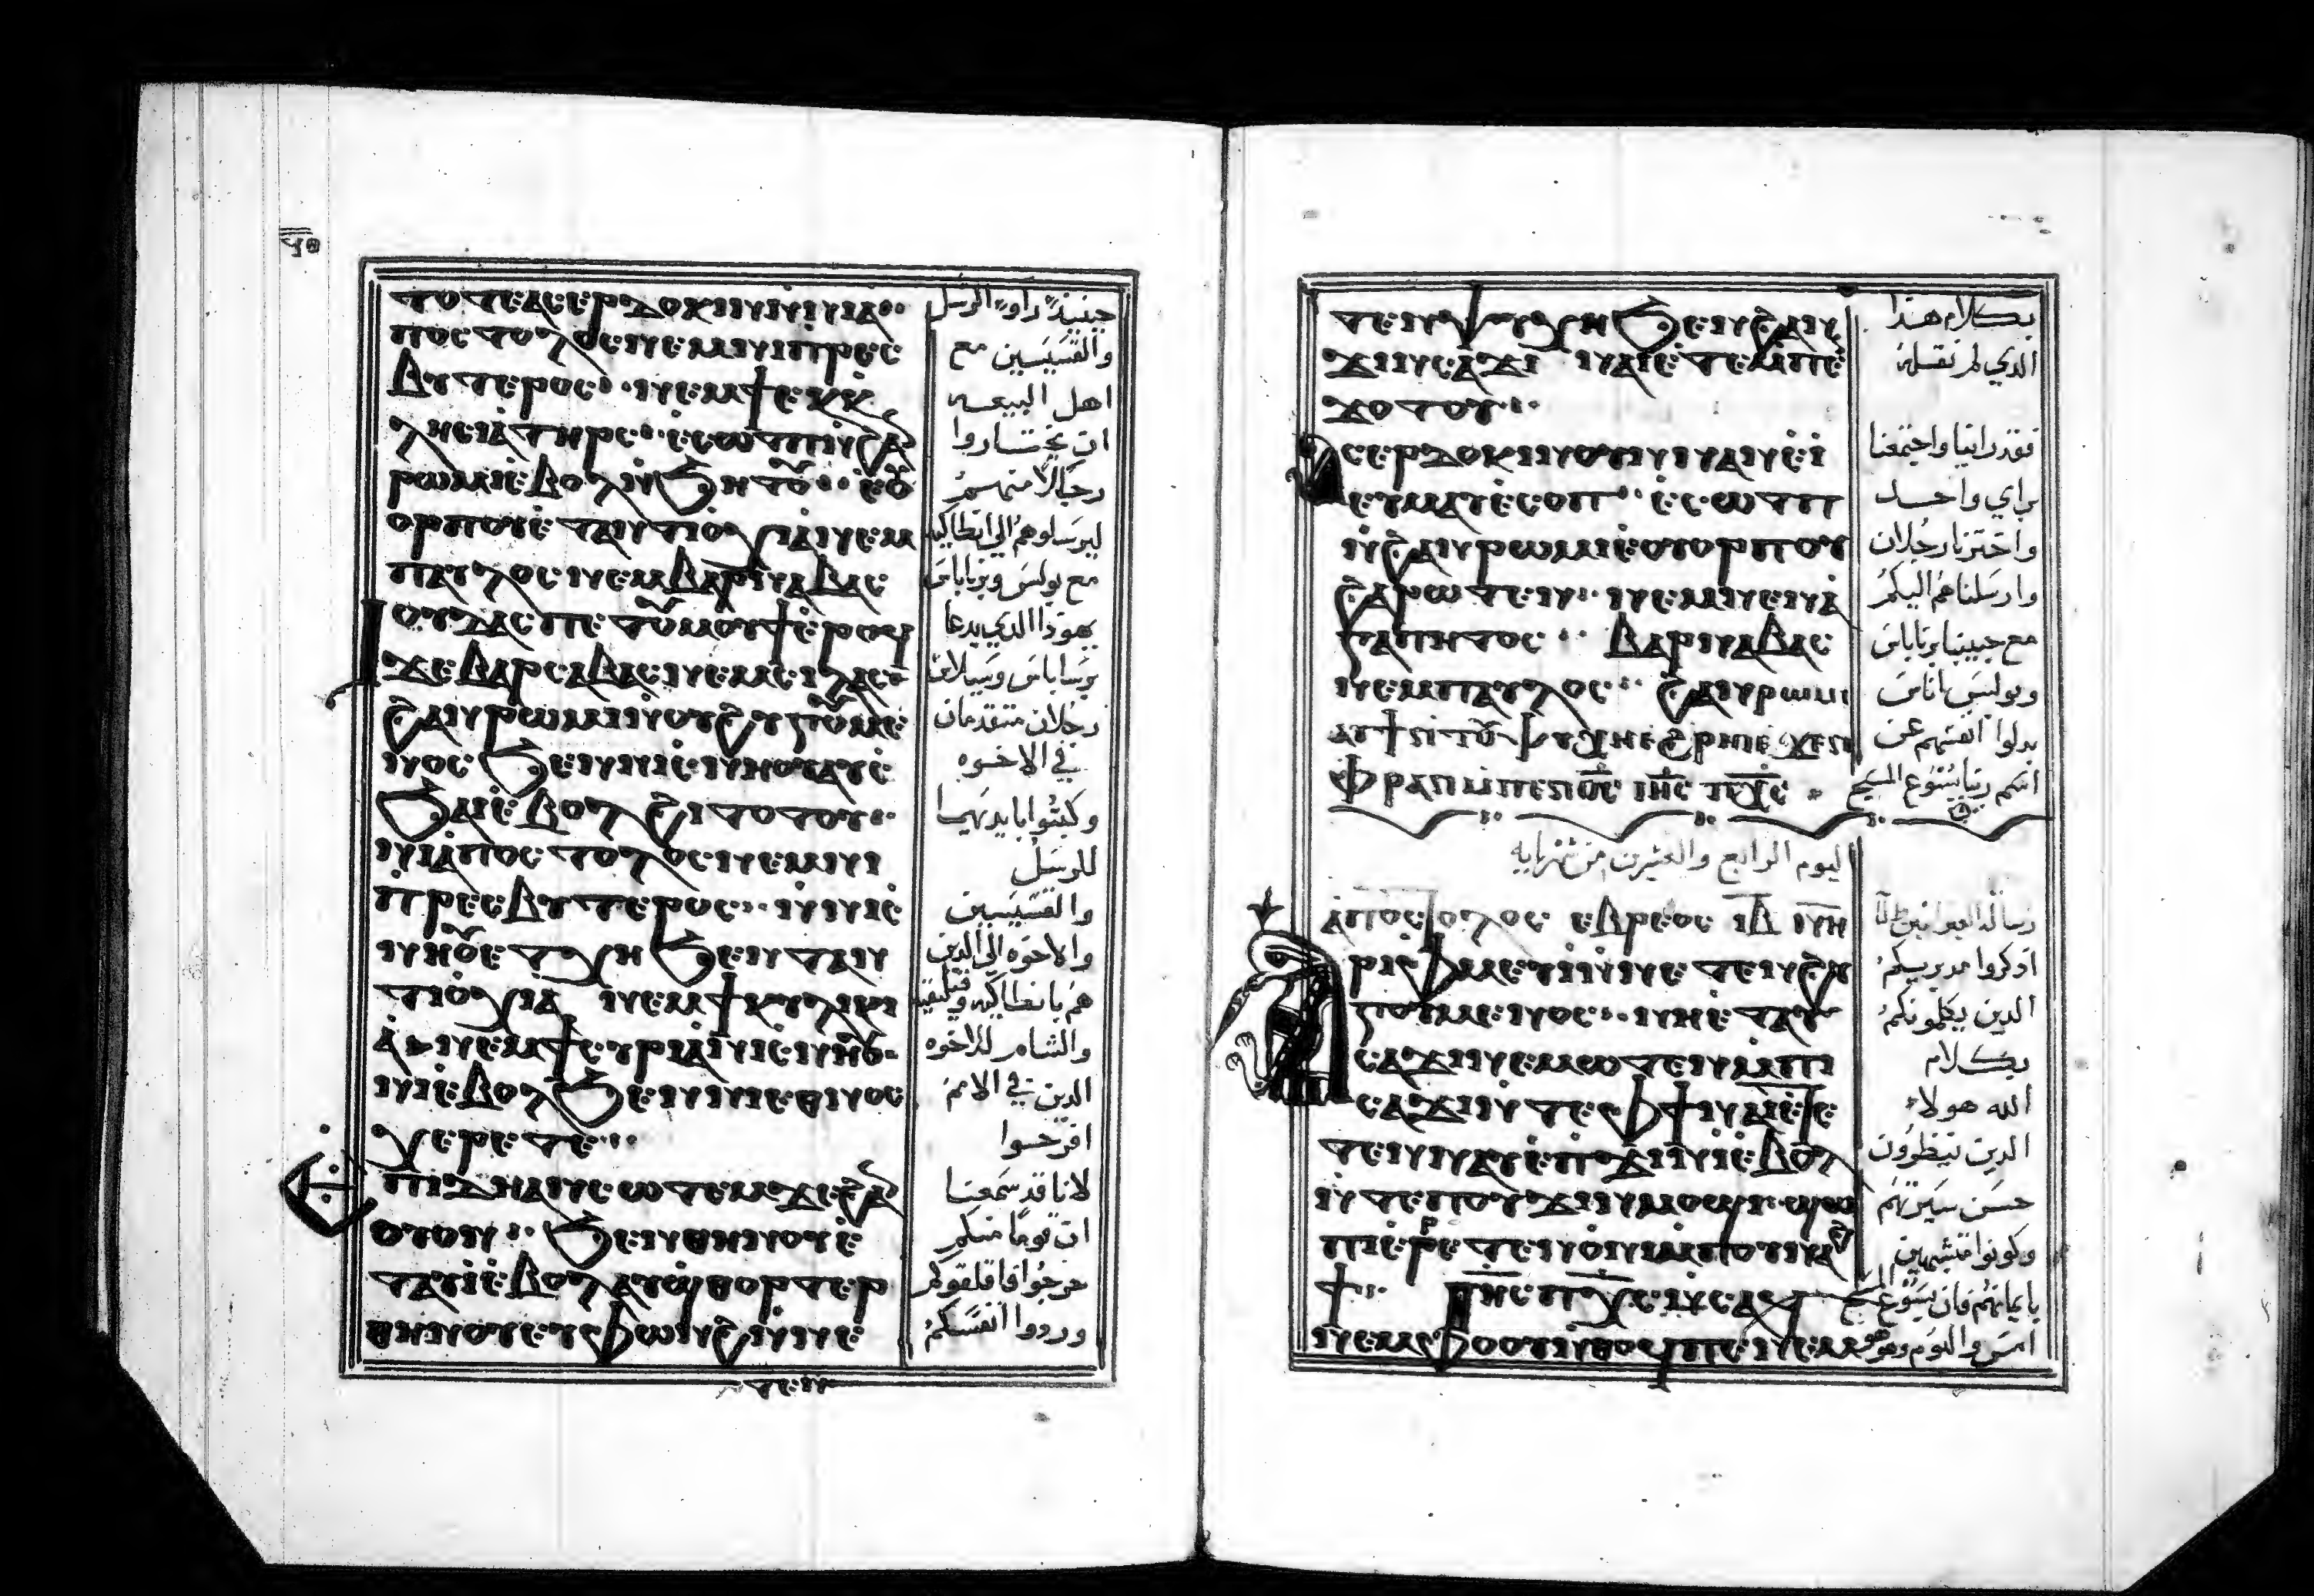 ⲧⲟⲧⲉ ⲁⲥⲉⲣⲇⲟⲕⲓⲛ ⲛ̀ⲛⲓⲁ̀
ⲡⲟⲥⲧⲟⲗⲟⲥ ⲛⲉⲙ ⲛⲓⲡⲣⲉⲥ
ⲃⲩⲧⲉⲣⲟⲥ ⲛⲉⲙ ϯⲉⲕⲕ
ⲗⲏⲥⲓⲁ̀ ⲧⲏⲣⲥ ⲉ̀ⲥⲱⲧⲡ ⲛ̀ϩⲁ̅
ⲣⲱⲙⲓ ⲉ̀ⲃⲟⲗ ⲛ̀ϧⲏⲧⲟⲩ ⲉ̀ⲟⲩ
ⲟⲣⲡⲟⲩ ⲉ̀ⲧⲁⲛⲧⲓⲟⲭⲓⲁ̀ ⲛⲉⲙ
ⲡⲁⲩⲗⲟⲥ ⲛⲉⲙ ⲃⲁⲣⲛⲁⲃⲁⲥ
ⲓⲟⲩⲇⲁⲥ ⲡⲉⲧⲟⲩⲙⲟⲩϯ ⲉ̀ⲣⲟϥ
ϫⲉ ⲃⲁⲣⲥⲁⲃⲁⲥ ⲛⲉⲙ ⲥⲓⲗⲁⲥ
ϩⲁⲛⲣⲱⲙⲓ ⲛ̀ϩⲩⲅⲟⲩⲙⲉ
ⲛⲟⲥ ϧⲉⲛ ⲛⲓⲥ̀ⲛⲏⲟⲩ ⲁⲩⲥ̀
ϧⲁⲓ ⲉ̀ⲃⲟⲗ ϩⲓⲧⲟⲧⲟⲩ
ⲛⲓⲁ̀ⲡⲟⲥⲧⲟⲗⲟⲥ ⲛⲉⲙ ⲛⲓ
ⲡⲣⲉⲥⲃⲩⲧⲉⲣⲟⲥ ⲛ̀ⲛⲓⲥ̀
ⲛⲏⲟⲩ ⲉⲧⲭⲏ ϧⲉⲛ ⲧⲁⲛ
ⲧⲓⲟⲭⲓⲁ ⲛⲉⲙ ϯⲕⲩⲗⲓⲕⲓ
ⲁ̀ ⲛⲉⲙ ϯⲥⲩⲣⲓⲁ̀ ⲛⲓⲥⲛⲏⲟⲩ
ⲛⲓⲉ̀ⲃⲟⲗ ϧⲉⲛ ⲛⲓⲉⲑⲛⲟⲥ
ⲭⲉⲣⲉⲧⲉ
ⲉⲡⲓⲇⲏ ⲁⲛⲥⲱⲧⲉⲙ ϫⲉ ϩⲁ̅
ⲟⲩⲟⲛ ϧⲉⲛ ⲑⲏⲛⲟⲩ ⲉ̀
ⲧⲁⲩⲓ̀ ⲉ̀ⲃⲟⲗ ⲁⲩϣⲑⲟⲣⲧⲉⲣ
ⲑⲏⲛⲟⲩ ⲉⲩⲫⲱⲛϩ ⲛ̀ⲛⲉ
ⲧⲉⲛ
حينيذ راوا الرسل
والقسيسين مع
اهل البيعه
ان يختاروا
رجالا منهم
ليرسلوهم الي انطاكيه
مع بولس وبرنابا
يهوذا الذي يدعا
برساباس وسيلاس
رجلان متقدمان
في الاخوه
وكتبوا بايديهما
الرسل
والقسيسين
والاخوه الي الذين
هم بانطاكيه وقيليقيه
والشام للاخوه
الذين في الامم
افرحوا
لانا قد سمعنا
ان قوما منكم
خرجوا فاقلقوكم
ورددوا انفسكم
ⲧⲉⲛⲯⲩⲭⲏ ϧⲉⲛ ϩⲁⲛ
ⲥⲁϫⲓ ⲛⲁⲓ ⲉⲧⲉⲙⲡⲉ
ϫⲟⲧⲟⲩ
ⲁⲥⲉⲣⲇⲟⲕⲓⲛ ⲟⲩⲛ ⲛⲁⲛ ⲉ̀
ⲉⲩⲙⲁ ⲉⲩⲥⲟⲡ ⲉ̀ⲥⲱⲧⲡ
ⲛ̀ϩⲁⲛⲣⲱⲙⲓ ⲉⲟⲩⲟⲣⲡⲟⲩ
ϩⲁⲣⲱⲧⲉⲛ ⲛⲉⲙ ⲛⲉⲛⲁ
ⲅⲁⲡⲏⲧⲟⲥ ⲃⲁⲣⲛⲁⲃⲁⲥ
ⲛⲉⲙ ⲡⲁⲩⲗⲟⲥ ϩⲁⲛⲣⲱⲙⲓ
ⲉⲁⲩϯ ⲛ̀ⲧⲟⲩⲯⲩⲭⲏ ⲉ̀ϩⲣⲏⲓ ⲉϫⲉⲛ
ⲫⲣⲁⲛ ⲙ̀ⲡⲉⲛⲟ̅ⲥ̅ ⲓ̅ⲏ̅ⲥ̅ ⲡ̅ⲭ̅ⲥ̅
بكلام هذا
الذي لم نقله
فقد راينا واجتمعنا
براي واحد
واخترنا رجلان
وارسلناهم اليكم
مع حبيبنا برنابا
وبولس اناس
بدلوا انفسهم عن
اسم ربنا يسوع المسيح
اليوم الرابع والعشرين من شهر بابه
ⲁⲡⲟⲥⲧⲟⲗⲟⲥ ⲉⲃⲣⲉⲟⲥ
ⲁⲣⲓⲫⲙⲉⲩⲓ̀ ⲛ̀ⲛⲉⲧⲉⲛϩⲩ
ⲅⲟⲩⲙⲉⲛⲟⲥ ⲛⲏ ⲉ̀ⲧⲁⲩ
ⲥⲁϫⲓ ⲛⲉⲙⲱⲧⲉⲛ ⲙ̀ⲡⲓ
ⲥⲁϫⲓ ⲛ̀ⲧⲉ ⲫϯ ⲛⲁⲓ ⲉⲧⲉ
ⲧⲉⲛⲛⲁⲩ ⲉ̀ⲡϫⲓⲛⲓ ⲉ̀ⲃⲟⲗ
ⲛ̀ⲧⲉ ⲡⲟⲩϫⲓⲛⲙⲟϣⲓ ϣⲱ
ⲡⲓ ⲉ̀ⲣⲉⲧⲉⲛⲟⲛⲓ ⲙ̀ⲡⲟⲩⲛⲁϩ
ϯ ⲓ̅ⲏ̅ⲥ̅ ⲡ̅ⲭ̅ⲥ̅ ⲛ̀ⲥⲁϥ
ⲛⲉⲙ ⲫⲟⲟⲩ ⲛ̀ⲑⲟϥ ⲡⲉ ⲛⲉⲙ
رسالة العبرانيين
اذكروا مدبريكم
الذين يكلمونكم
بكلام
الله هولاء
الذين تنظرون
حسن سيرتهم
وكونوا متشبهين
بايمانهم فان يسوع المسيح
امس واليوم وهو هو